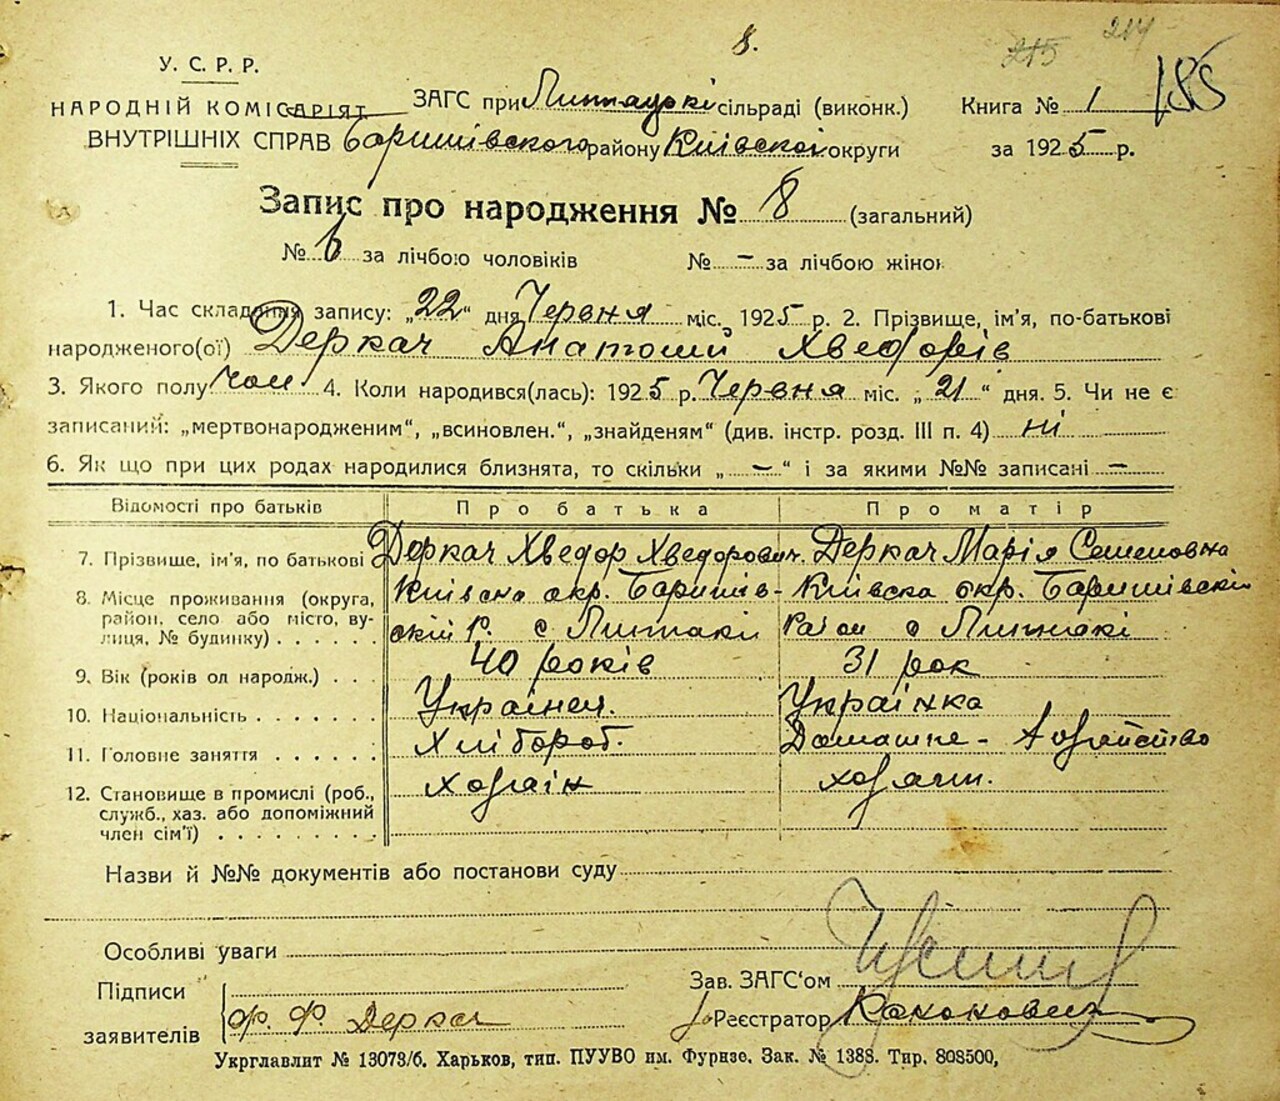 8.
215 217
185
У. С. Р. Р.
НАРОДНІЙ КОМІСАРІЯТ
ВНУТРІШНІХ СПРАВ
ЗАГС при сільраді (виконк.)
Баришівского району Київскої округи
Книга № 1
за 1925 р.
Запис про народження № 8 (загальний)
№ 6 за лічбою чоловіків № – за лічбою жінок
1. Час складання запису: „22“ дня Червня міс. 1925 р. 2. Прізвище, ім'я, по-батькові
народженого(ої) Деркач Анатолий Хведорів
3. Якого полу чол 4. Коли народився(лась): 1925 р. Червня міс. „21“ дня. 5. Чи не є
записаний: „мертвонародженим“, „всиновлен.“, „знайденям“ (див. інстр. розд. III п. 4) ні
6. Як що при цих родах народилися близнята, то скільки „–“ і за якими №№ записані –
Відомості про батьків Про батька Про матір
7. Прізвище, ім'я, по батькові Деркач Хведор Хведорович. Деркач Марія Семеновна
8. Місце проживання (округа, район, село або місто, вулиця, № будинку) Київска окр. Баришів- Київска окр. Баришівскій
скій р. с Лихнаки район с Лихнакі
9. Вік (років од народж.) 40 років 31 рок
10. Національність Українец. Українка
11. Головне заняття Хлібороб. Домашне-хозяйство
12. Становище в промислі (роб., служб., хаз. або допоміжний член сім'ї) хозяін хозяін.
Назви й №№ документів або постанови суду
Особливі уваги
Підписи
заявителів Ф. Ф. Деркач
Зав. ЗАГС'ом
Реєстратор
Укрглавлит № 13073/б. Харьков, тип. ПУУВО им. Фрунзе. Зак. № 1388. Тир. 808500,